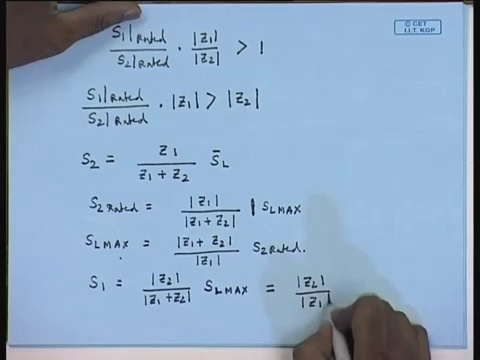 © CET
I.I.T. KGP
S1|Rated / S2|Rated · |Z1| / |Z2| > 1
S1|Rated / S2|Rated · |Z1| > |Z2|
S2 = Z1 / (Z1 + Z2) S̄L
S2 Rated = |Z1| / |Z1 + Z2| | SLMAX
SLMAX = |Z1 + Z2| / |Z1| S2 Rated.
S1 = |Z2| / |Z1 + Z2| SLMAX = |Z2| / |Z1|